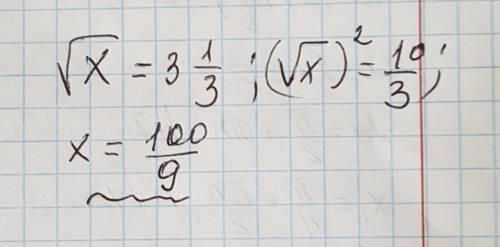 √x = 3 1/3 ; (√x)² = 10/3 ;
x = 100/9